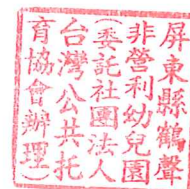 屏東縣鶴聲
非營利幼兒園
(委託社團法人
台灣公共托
育協會辦理)